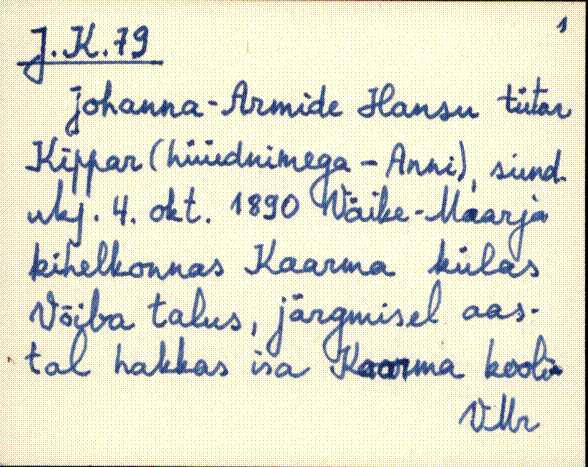 1
J.K.79
Johanna-Armide Hansu tütar
Kippar (hüüdnimega - Anni), sünd.
ukj. 4. okt. 1890 Väike-Maarja
kihelkonnas Kaarma külas
Võiba talus, järgmisel aas-
tal hakkas isa Kaarma kooli-
VMr